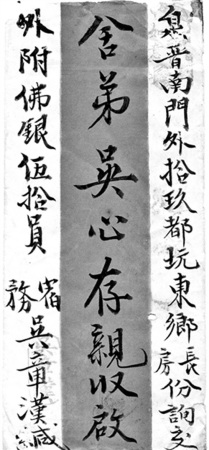 晉南門外拾玖都坑東鄉長房份詢交
舍弟吳心存親收啟
外附佛銀伍拾員 宿務 吳章漢緘